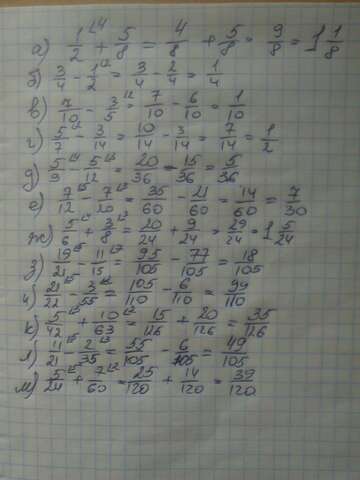 а) 1/2 + 5/8 = 4/8 + 5/8 = 9/8 = 1 1/8
б) 3/4 - 1/2 = 3/4 - 2/4 = 1/4
в) 7/10 - 3/5 = 7/10 - 6/10 = 1/10
г) 5/7 - 3/14 = 10/14 - 3/14 = 7/14 = 1/2
д) 5/9 - 5/12 = 20/36 - 15/36 = 5/36
е) 7/12 - 7/20 = 35/60 - 21/60 = 14/60 = 7/30
ж) 5/6 + 3/8 = 20/24 + 9/24 = 29/24 = 1 5/24
з) 19/21 - 11/15 = 95/105 - 77/105 = 18/105
и) 21/22 - 3/55 = 105/110 - 6/110 = 99/110
к) 5/42 + 10/63 = 15/126 + 20/126 = 35/126
л) 11/21 - 2/35 = 55/105 - 6/105 = 49/105
м) 5/24 + 7/60 = 25/120 + 14/120 = 39/120